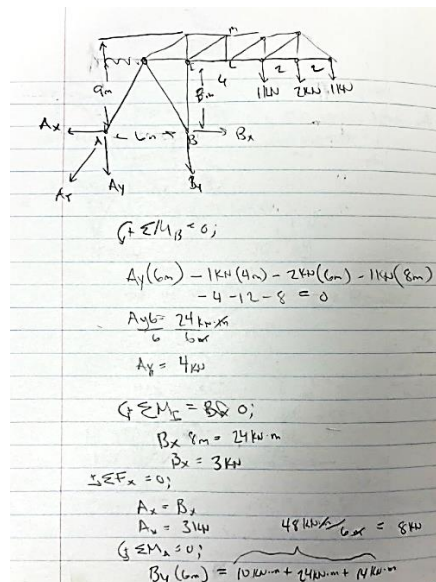 M
I
L
9m
8m
4
2
2
1KN
2KN
1KN
Ax
A
6m
B
Bx
Ay
By
↺+ ΣM_B = 0;
Ay(6m) - 1KN(4m) - 2KN(6m) - 1KN(8m)
-4 -12 -8 = 0
Ay6 = 24KN·m
6 6m
Ay = 4KN
↺ ΣM_I = 0;
Bx 8m = 24KN·m
Bx = 3KN
ΣFx = 0;
Ax = Bx
Ax = 3KN
48KN·m/6m = 8KN
↺ ΣM_A = 0;
By(6m) = 10KN·m + 24KN·m + 14KN·m